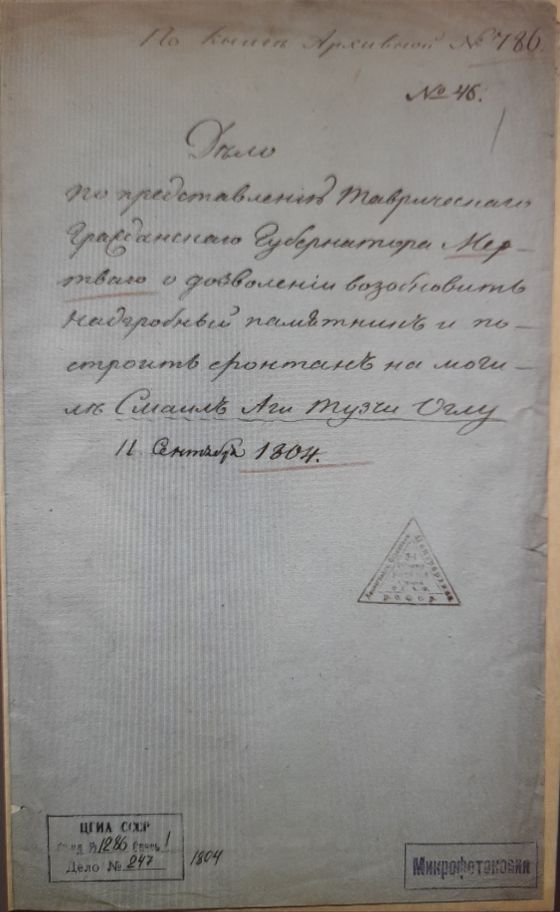 По Книгѣ Архивной № 786.
№ 46.
Дѣло
по представленію Таврическаго
Гражданскаго Губернатора Мер-
тваго о дозволеніи возобновить
надгробный памѣтникъ и по-
строить фонтанъ на моги-
лѣ Смаилъ Аги Тузчи Оглу
11. Сентября 1804.
РСФСР
ЦГИА СССР
Фонд № 1286 Опись 1
Дело № 247
1804
Микрофотокопия